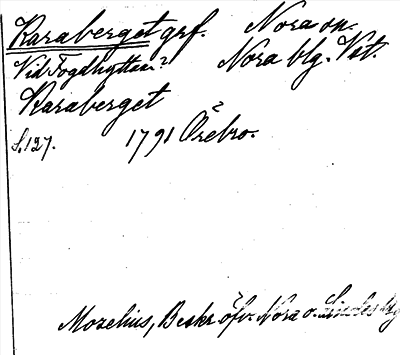 Karaberget grf. Nora sn.
Vid Fogdhyttan? Nora blg. Vstm.
Karaberget
S. 127. 1791 Örebro.
Mozelius, Beskr. öfv. Nora o.